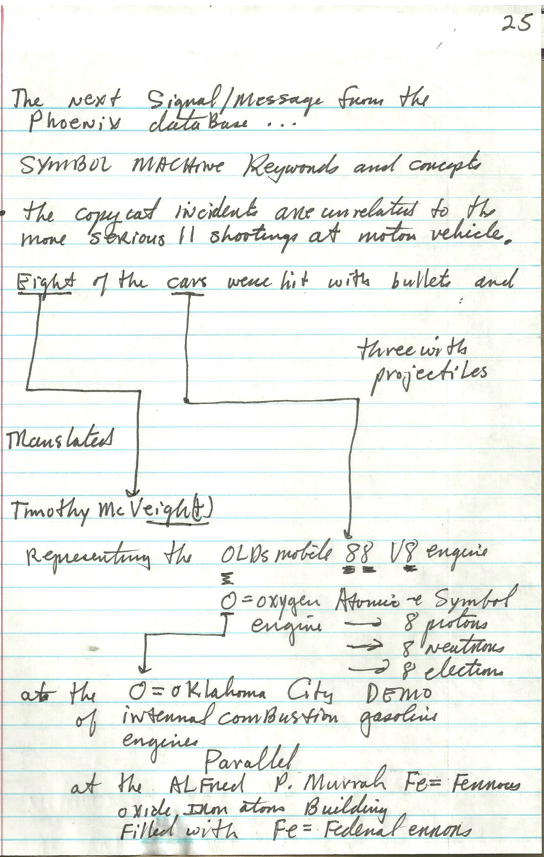 25
The next Signal/Message from the
Phoenix dataBase ...
SYMBOL MACHINE Keywords and concepts
• the copycat incidents are unrelated to the
more serious 11 shootings at motor vehicle.
Eight of the cars were hit with bullets and
three with
projectiles
Translated
Timothy McVeigh(t)
Representing the OLDsmobile 88 V8 engine
O = oxygen Atomic-e Symbol
engine → 8 protons
→ 8 neutrons
→ 8 electrons
at the O = oklahoma City DEMO
of internal comBustion gasoline
engines
Parallel
at the ALFred P. Murrah Fe = Ferrous
oxide Iron atoms Building
Filled with Fe = Federal errors